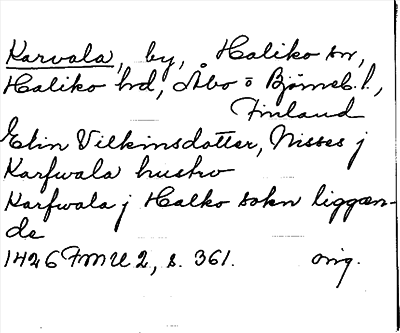 Karvala, by, Haliko sn,
Haliko hd, Åbo o Björneb. l.,
Finland
Elin Vilkinsdotter, Nisses j
Karfwala hustro
Karfwala j Halko sokn liggæn-
de
1426 FMU 2, s. 361. orig.